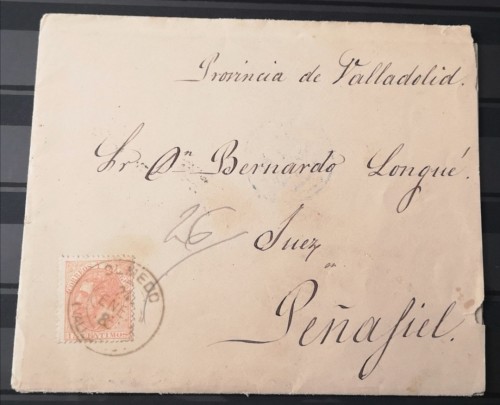 Provincia de Valladolid.
Sr Dn Bernardo Longué.
26
Juez
en
Peñafiel.
OLMEDO